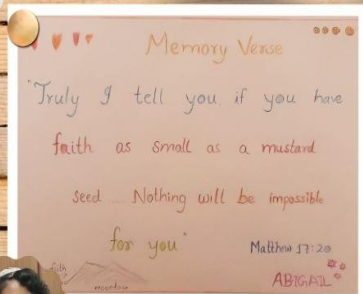 Memory Verse
"Truly I tell you if you have
faith as small as a mustard
seed .... Nothing will be impossible
for you"
Matthew 17:20
faith
mountain
ABIGAIL